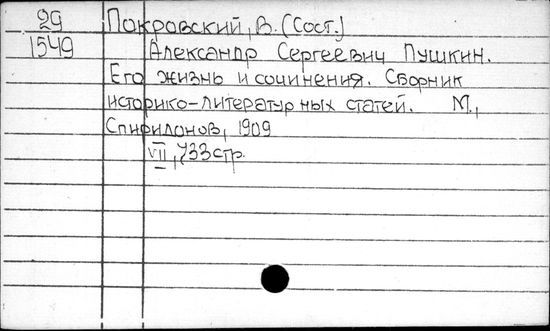 29 Покровский, В. (Сост.)
1549 Александр Сергеевич Пушкин.
Его жизнь и сочинения. Сборник
историко-литературных статей. М.,
Спиридонов, 1909
VII, 733 стр.